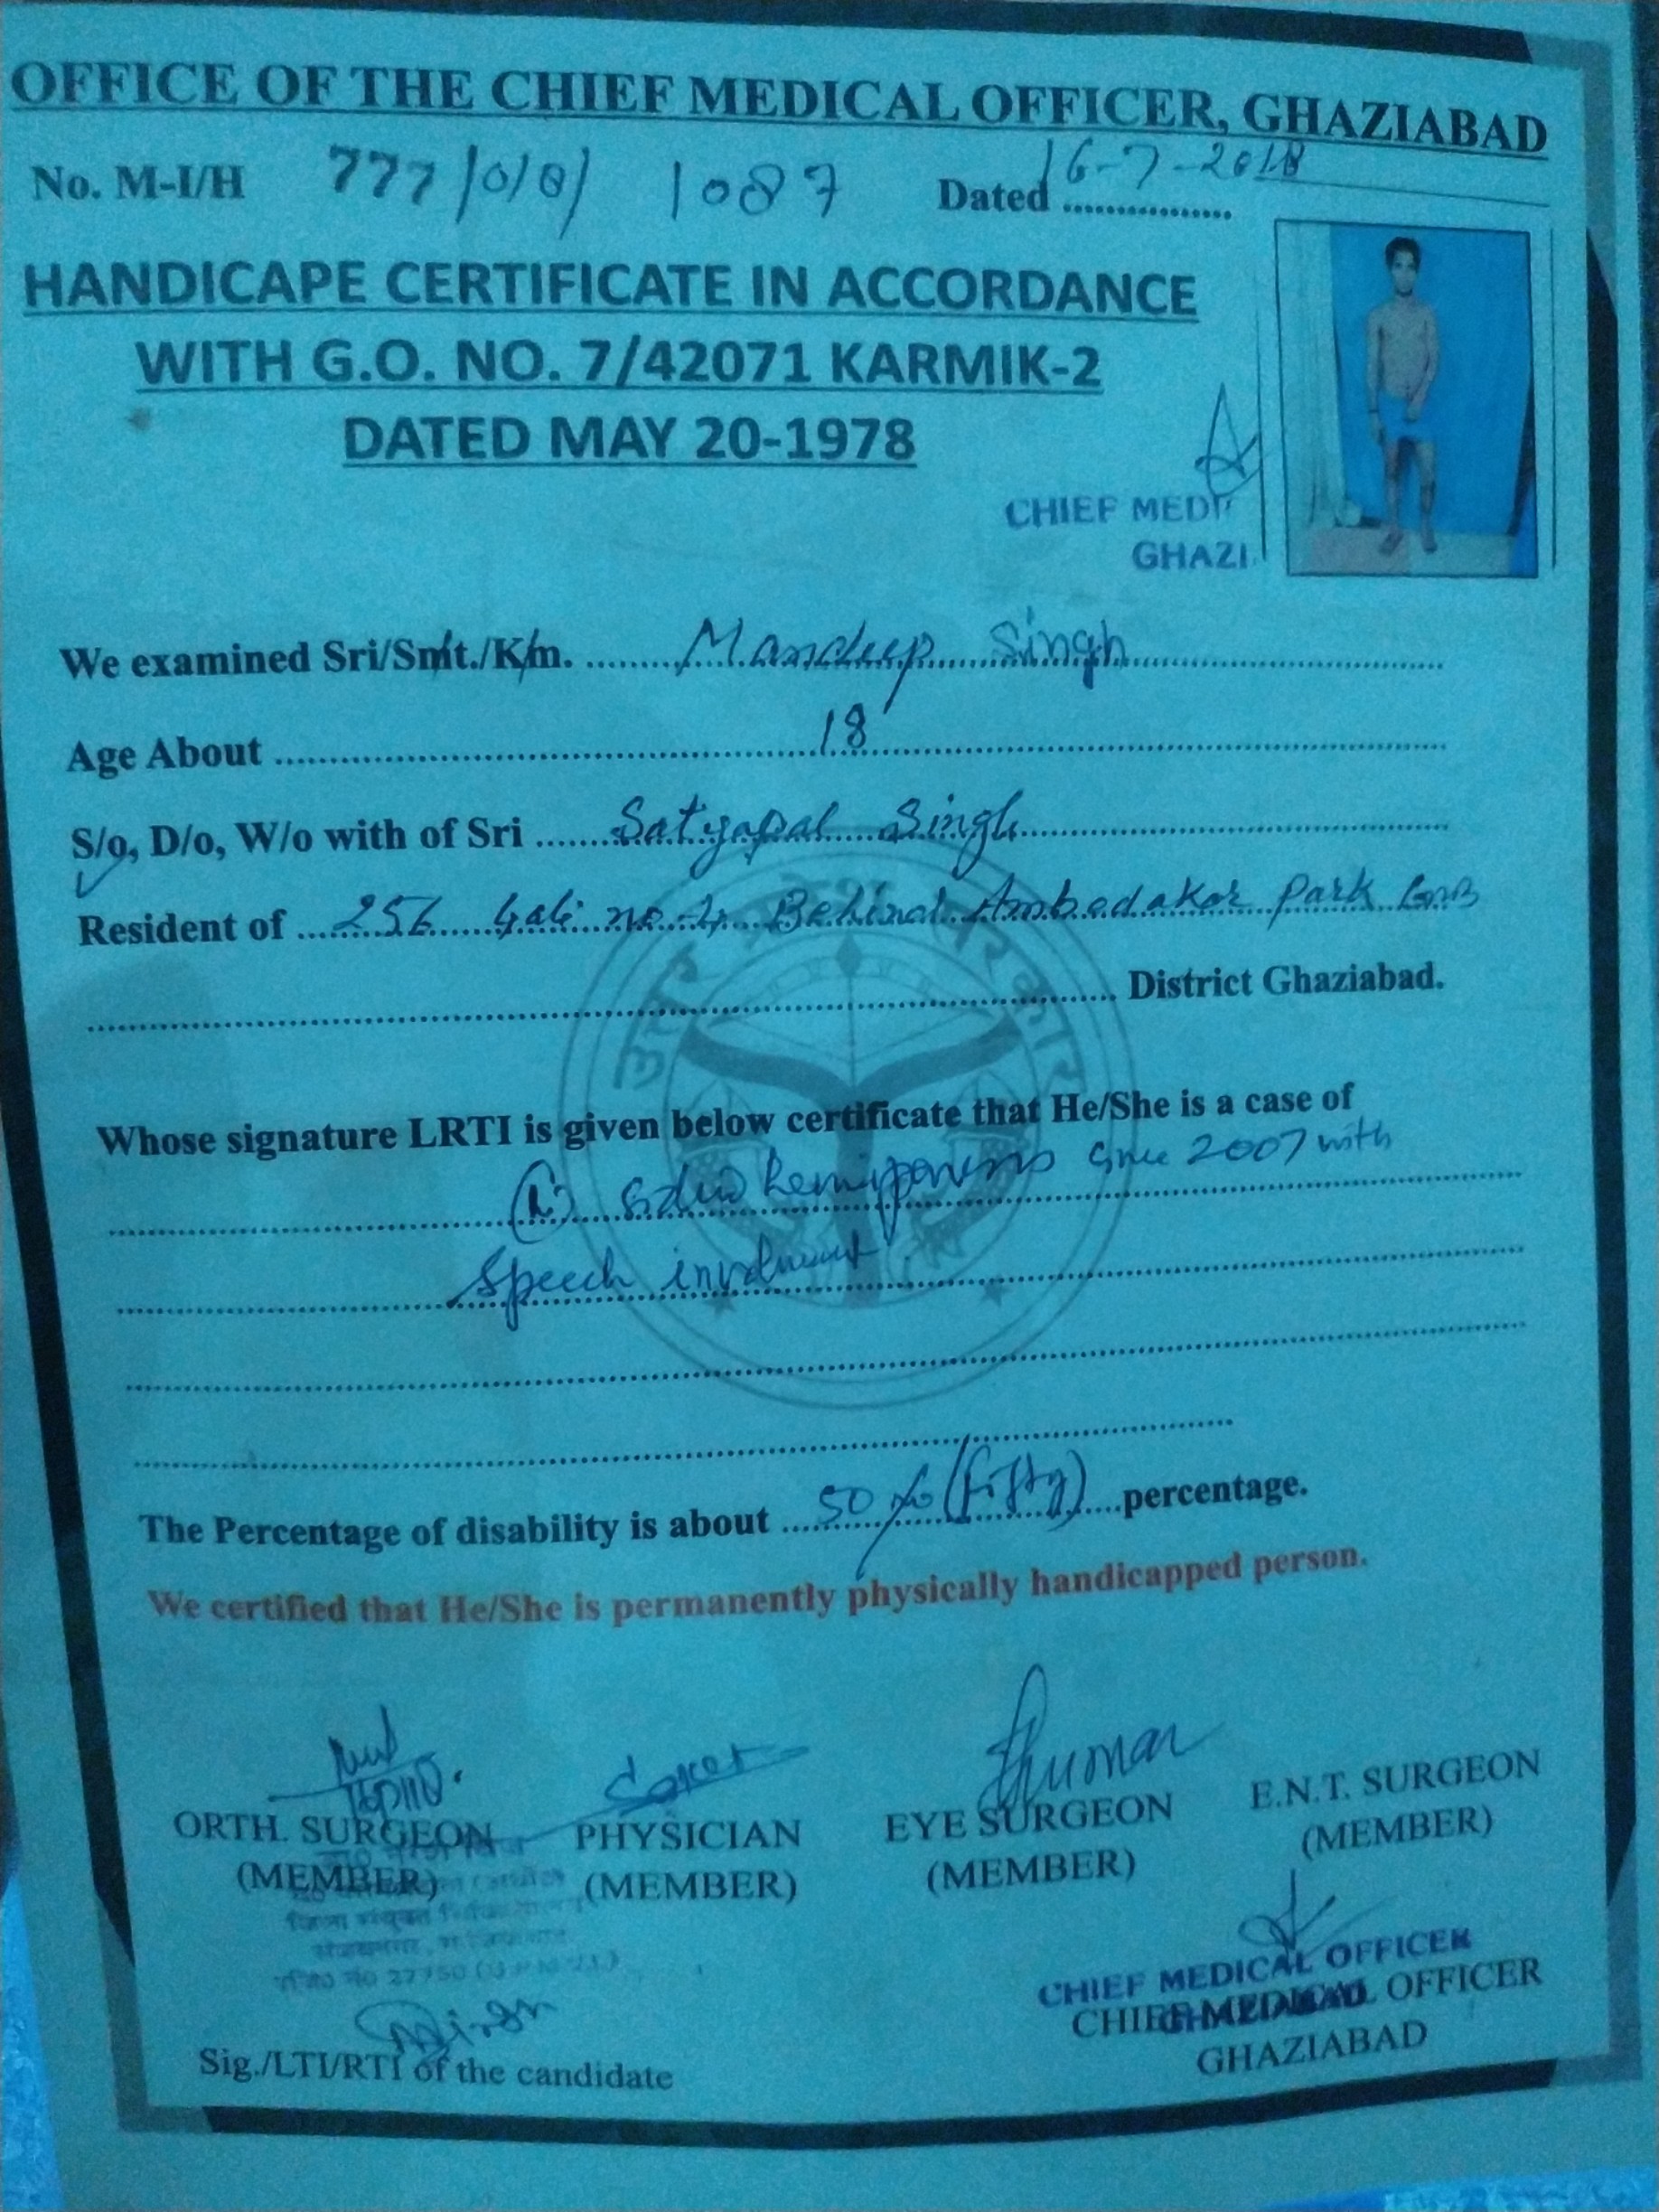 OFFICE OF THE CHIEF MEDICAL OFFICER, GHAZIABAD
No. M-I/H 777/0/8/ 1087 Dated 16-7-2018
HANDICAPE CERTIFICATE IN ACCORDANCE
WITH G.O. NO. 7/42071 KARMIK-2
DATED MAY 20-1978
CHIEF MEDI
GHAZI
We examined Sri/Smt./Km. Mandeep Singh
Age About 18
S/o, D/o, W/o with of Sri Satyapal Singh
Resident of 256 Gali no-4 Behind Ambedakar Park
District Ghaziabad.
उत्तर प्रदेश सरकार
Whose signature LRTI is given below certificate that He/She is a case of
hemiparesis since 2007 with
Speech
The Percentage of disability is about 50% (fifty) percentage.
We certified that He/She is permanently physically handicapped person.
ORTH. SURGEON PHYSICIAN EYE SURGEON E.N.T. SURGEON
(MEMBER) (MEMBER) (MEMBER) (MEMBER)
CHIEF MEDICAL OFFICER
GHAZIABAD
CHIEF MEDICAL OFFICER
GHAZIABAD
Sig./LTI/RTI of the candidate